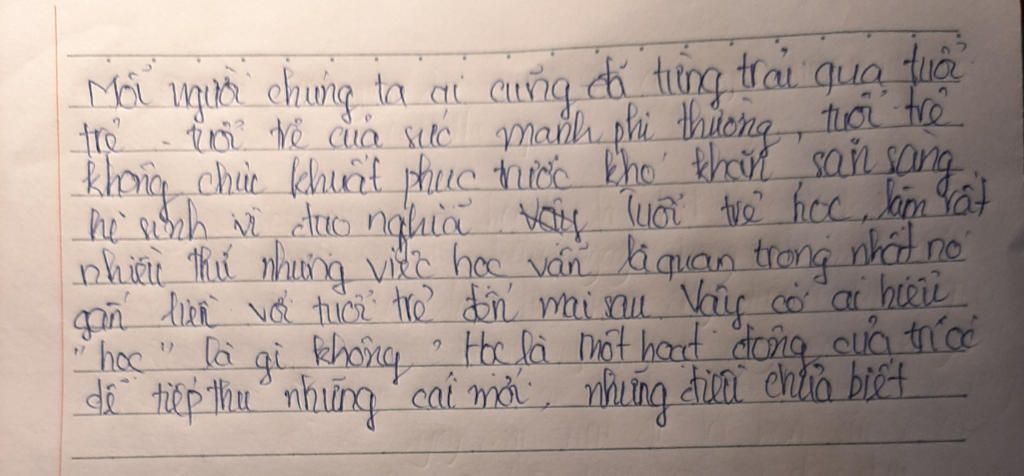 Mỗi người chúng ta ai cũng đã từng trải qua tuổi
trẻ - tuổi trẻ của sức mạnh phi thường, tuổi trẻ
không chịu khuất phục trước khó khăn sẵn sàng
hi sinh vì đạo nghĩa Tuổi trẻ học, làm rất
nhiều thứ nhưng việc học vẫn là quan trọng nhất nó
gắn liền với tuổi trẻ đến mai sau. Vậy có ai hiểu
"học" là gì không? Học là một hoạt động của trí óc
để tiếp thu những cái mới, những điều chưa biết